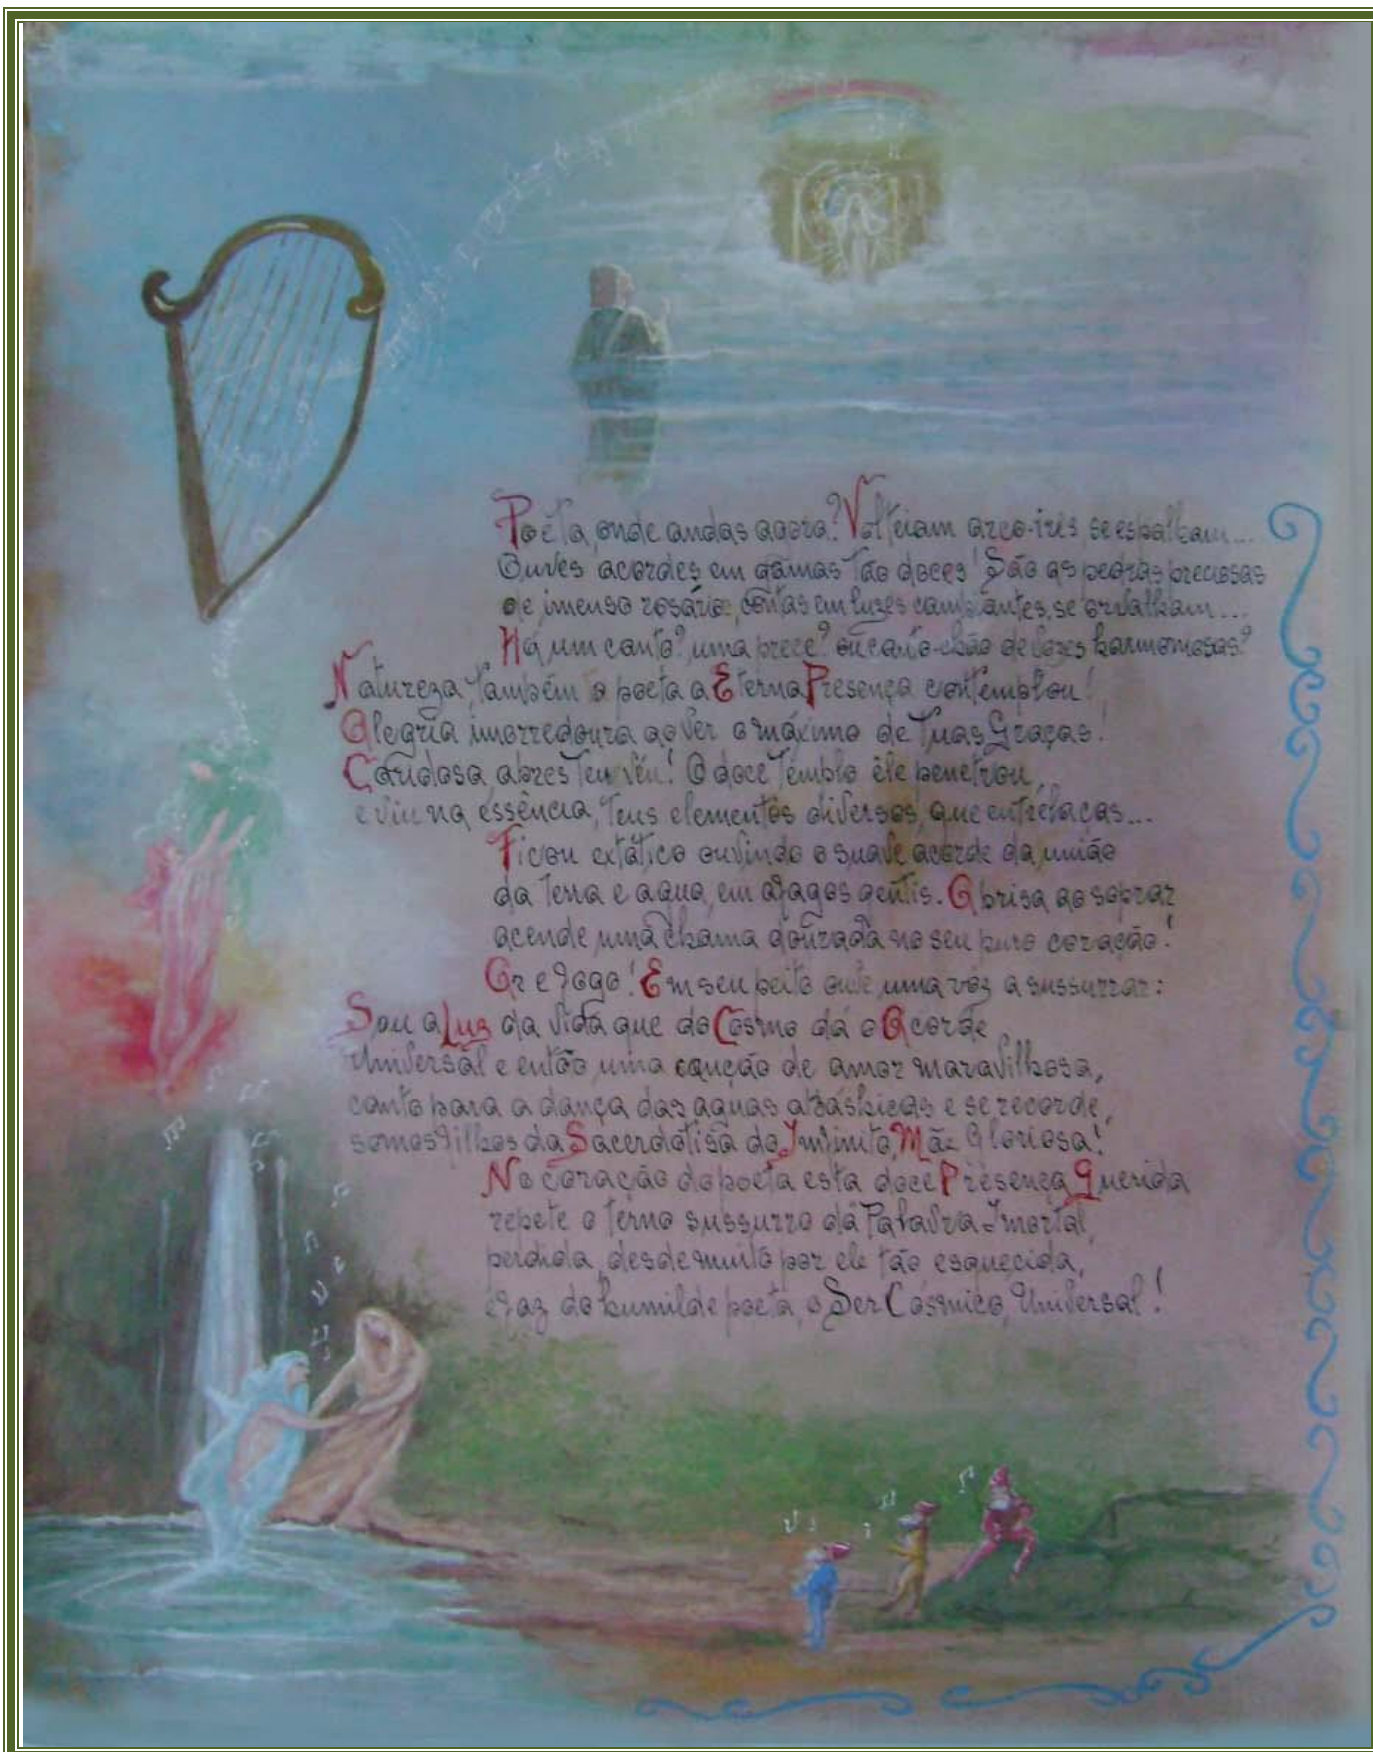 Poéta, onde andas agora? Volteiam arco-iris, se espalham...
Ouves acordes em gamas tão doces! São as pedras preciosas
de imenso rosário, contas em luzes cambiantes, se orvalham...
Há um canto? uma prece? ou canto-chão de vozes harmoniosas?
Natureza, também o poeta a Eterna Presença contemplou!
Alegria imorredoura ao ver o máximo de Tuas Graças!
Caridosa, abres Teu véu! O doce Templo êle penetrou,
e viu na essência, Teus elementos diversos, que entrelaças...
Ficou extático ouvindo o suave acorde da união
da Terra e agua, em afagos gentis. A brisa ao soprar
acende uma chama dourada no seu puro coração!
Ar e fogo! Em seu peito ouve uma vóz a sussurrar:
Sou a Luz da Vida que do Cosmo dá o Acorde
Universal e então uma canção de amor maravilhosa,
canto para a dança das aguas akáshicas e se recorde,
somos filhos da Sacerdotisa do Infinito, Mãe Gloriosa!
No coração do poeta esta doce Presença Querida
repete o terno sussurro da Palavra Imortal,
perdida, desde muito por ele tão esquecida,
e faz do humilde poeta, o Ser Cósmico, Universal!